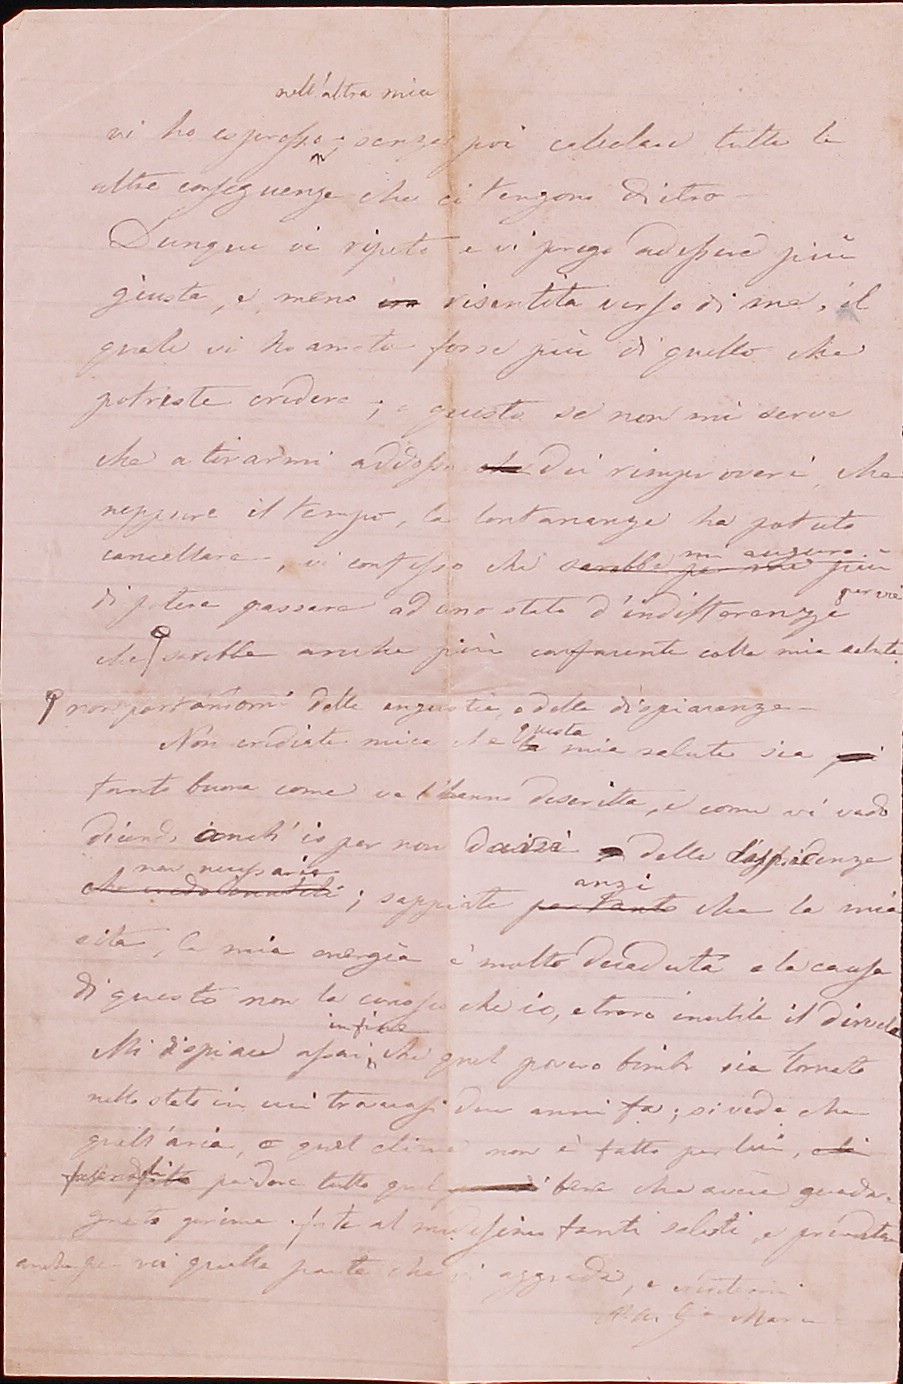 nell'altra mia
vi ho espresso; senza poi calcolare tutte le
altre conseguenze che ci tengono dietro -
Dunque vi ripeto e vi prego ad essere più
giusta, e meno risentita verso di me, il
quale vi ho amato forse più di quello che
potreste credere; e questo se non mi serve
che a tirarmi addosso dei rimproveri, che
neppure il tempo, la lontananza ha potuto
mi auguro
cancellare, vi confesso che sarebbe per me più
di potere passare ad uno stato d'indifferenza
per me
che sarebbe anche più confacente colla mia salute
non portandomi delle angustie, e delle dispiacenze -
questa
Non crediate mica che la mia salute sia
tanto buona come ve l'hanno descritta, e come vi vado
dicendo anch'io per non darvi delle dispiacenze
non necessarie
che credo inutili; sappiate pertanto che la mia
anzi
vita, la mia energia è molto decaduta e la causa
di questo non la conosco che io, e trovo inutile il dirvela
infine
Mi dispiace assai, che quel povero bimbo sia tornato
nello stato in cui trovavasi due anni fa; si vede che
quell'aria, e quel clima non è fatto per lui,
perdere tutto quel bene che aveva guada-
gnato prima. fate al medesimo tanti saluti, e prendete
anche per voi quella parte che vi aggrada, e